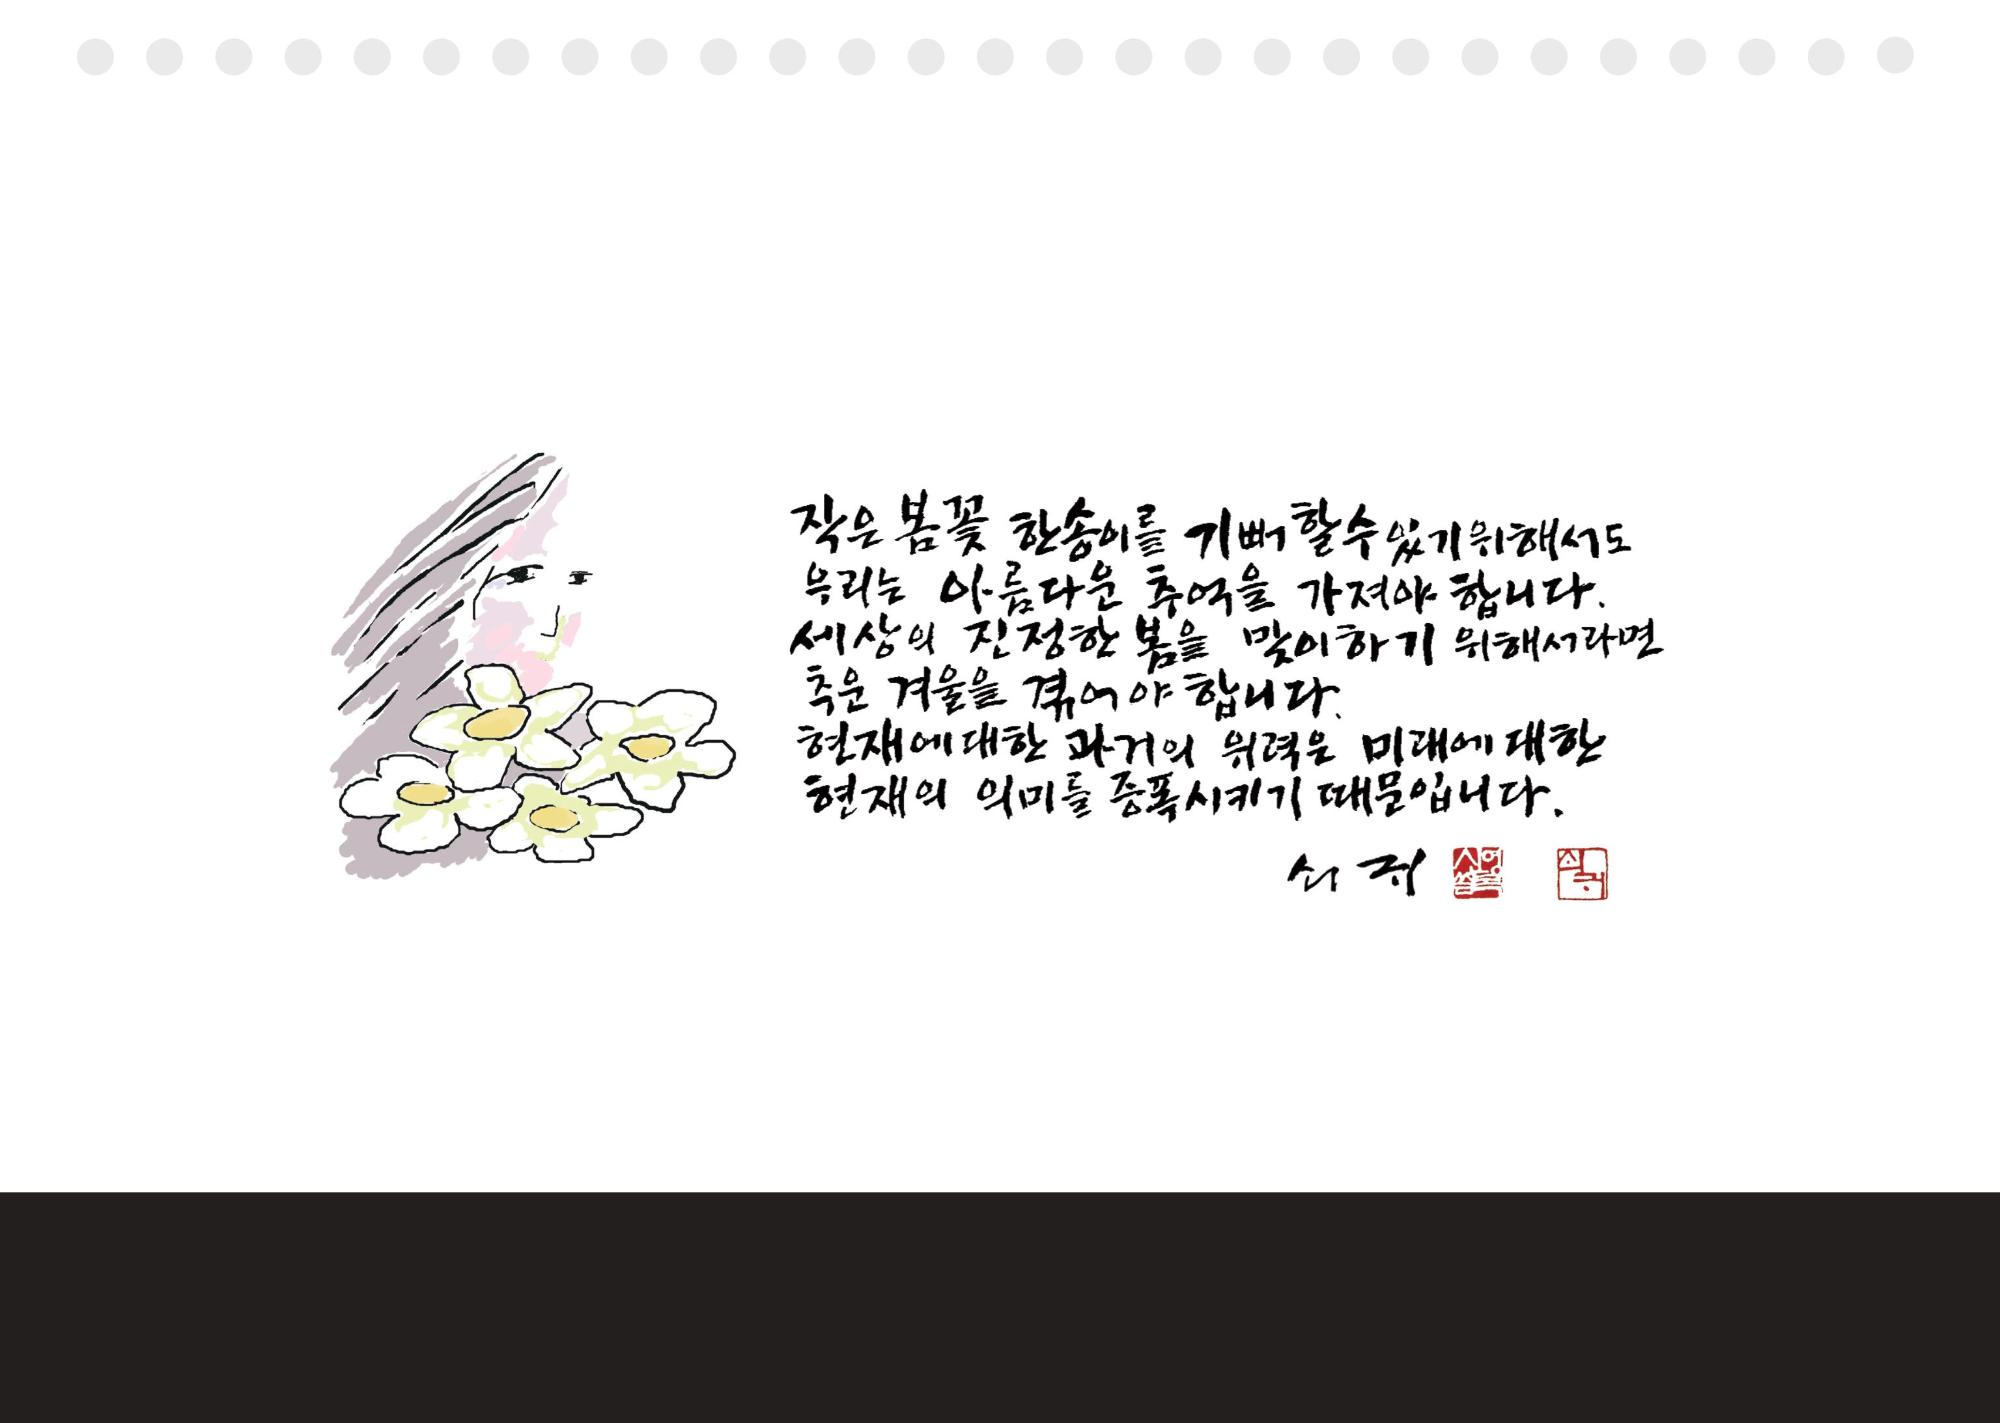 작은 봄꽃 한송이를 기뻐할수있기위해서도
우리는 아름다운 추억을 가져야 합니다.
세상의 진정한 봄을 맞이하기 위해서라면
추운 겨울을 겪어야 합니다.
현재에대한 과거의 위력은 미래에대한
현재의 의미를 증폭시키기 때문입니다.
쇠귀